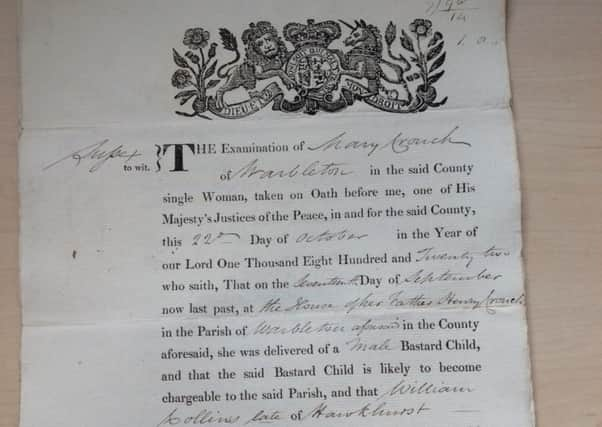 1. a.
DIEU ET MON DROIT
Sussex
to wit.
THE Examination of Mary Crouch
of Warbleton in the said County
single Woman, taken on Oath before me, one of His
Majesty's Justices of the Peace, in and for the said County,
this 22nd Day of October in the Year of
our Lord One Thousand Eight Hundred and Twenty two
who saith, That on the Seventeenth Day of September
now last past, at the House of her Father Henry Crouch
in the Parish of Warbleton aforesaid in the County
aforesaid, she was delivered of a Male Bastard Child,
and that the said Bastard Child is likely to become
chargeable to the said Parish, and that William
Collins late of Hawkhurst